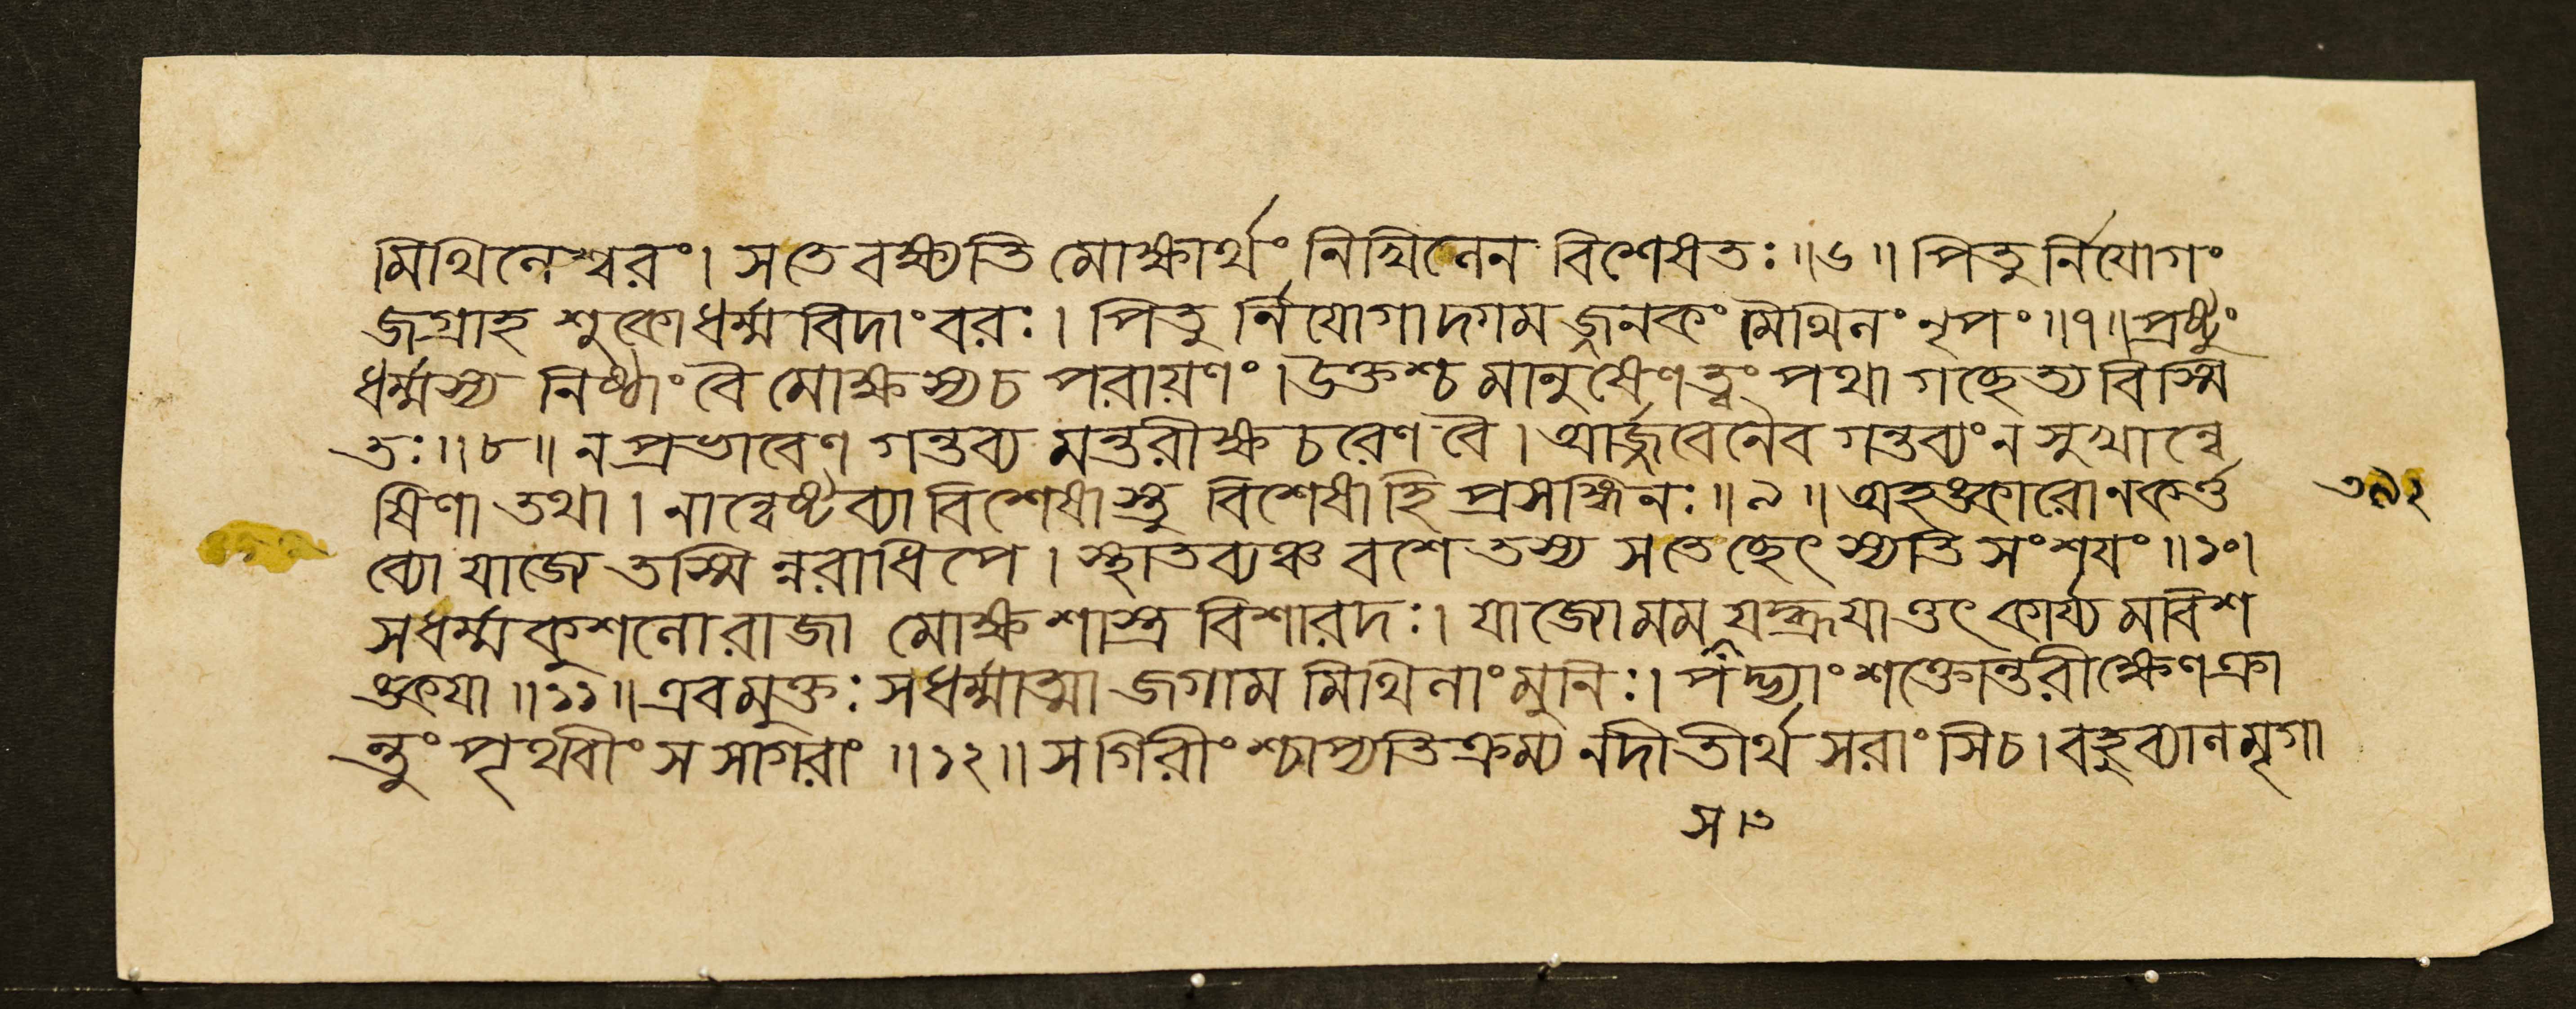 মিথিলেশ্বরং। সতে বক্ষ্যতি মোক্ষার্থং নিখিলেন বিশেষতঃ॥৬॥ পিতুর্নিযোগং
জগ্রাহ শুকোধর্ম্মবিদাংবরঃ। পিতুর্নিযোগাদগমজ্জনকং মিথিলং নৃপং॥৭॥ প্রষ্টুং
ধর্ম্মস্য নিষ্ঠাং বৈ মোক্ষস্যচ পরায়ণং। উক্তশ্চ মানুষেণত্বং পথা গচ্ছেত্যবিস্মি
তঃ॥৮॥ নপ্রভাবেণ গন্তব্য মন্তরীক্ষচরেণ বৈ। আর্জ্জবেনৈব গন্তব্যং ন সুখান্বে
ষিণা তথা। নান্বেষ্টব্যাবিশেষাস্তু বিশেষাহি প্রসঙ্গিনঃ॥৯॥ অহঙ্কারোনকর্ত্ত ৩৯২
ব্যো যাজ্যে তস্মিন্নরাধিপে। স্থাতব্যঞ্চ বশে তস্য সতেচ্ছেৎস্যতি সংশযং॥১০।
সধর্ম্মকুশলোরাজা মোক্ষশাস্ত্রবিশারদঃ। যাজ্যোমম যদ্ব্রূযাত্তৎকার্য্যমবিশ
ঙ্কযা॥১১॥ এবমুক্তঃ সধর্ম্মাত্মা জগাম মিথিলাংমুনিঃ। পদ্ভ্যাংশক্তোন্তরীক্ষেণক্রা
ন্তুং পৃথিবীং সসাগরাং॥১২॥ সগিরীংশ্চাপ্যতিক্রম্য নদীতীর্থসরাংসিচ। বহুব্যালমৃগা
স।৩